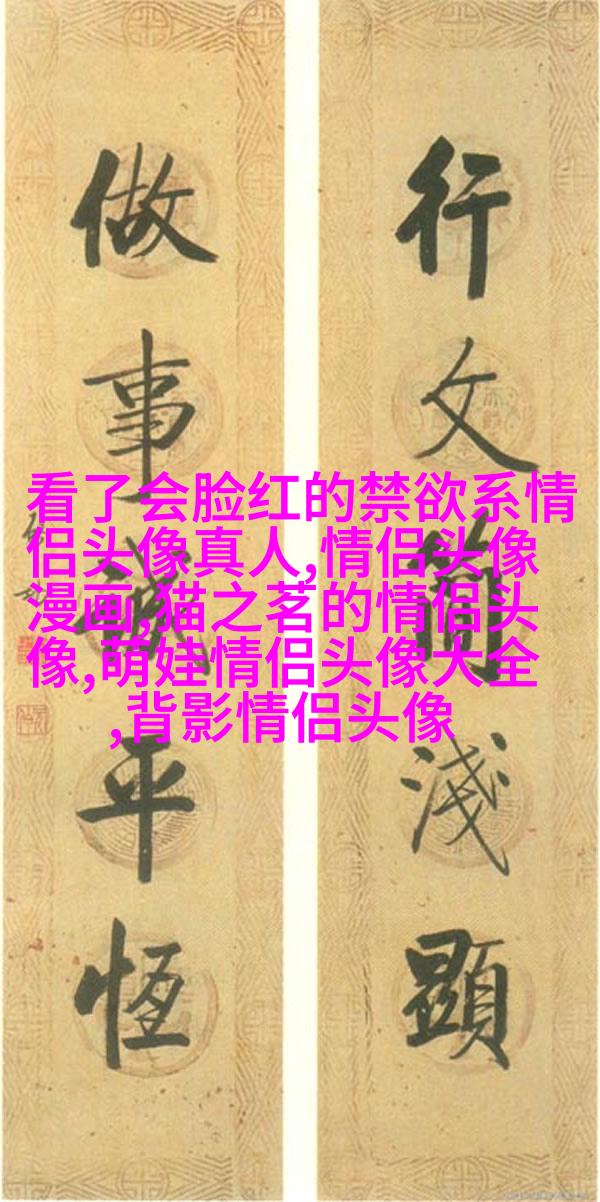 行文簡淺顯
做事誠平恆
看了会脸红的禁欲系情
侣头像真人,情侣头像
漫画,猫之茗的情侣头
像,萌娃情侣头像大全
,背影情侣头像